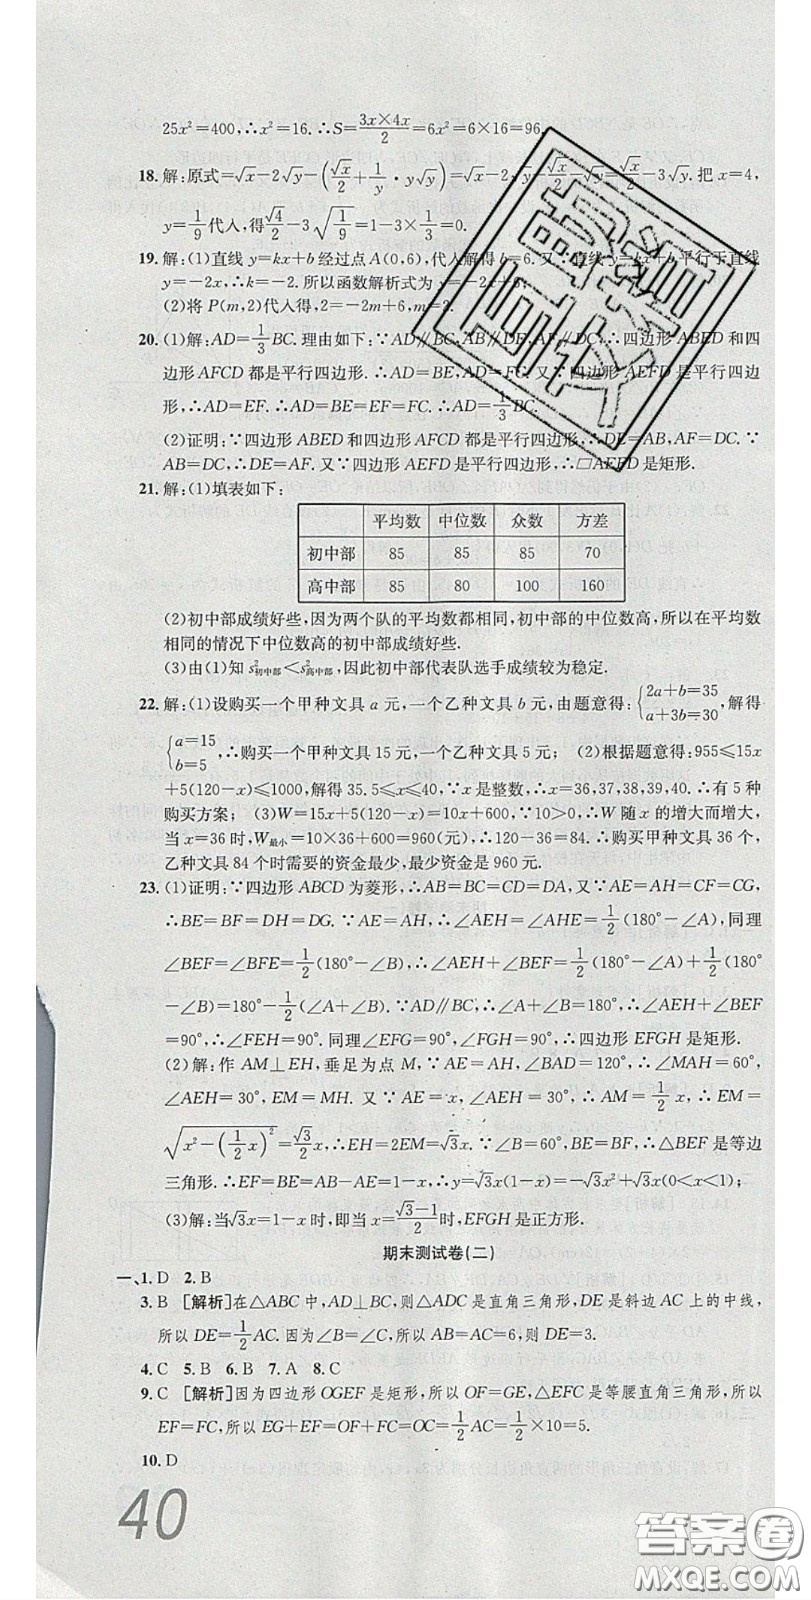 25x²=400,∴x²=16.∴S=3x×4x/2=6x²=6×16=96.
18.解:原式=√x-2√y-(√x/2+1/y·y√y)=√x-2√y-√x/2-√y=√x/2-3√y.把x=4,
y=1/9代人,得√4/2-3√(1/9)=1-3×1/3=0.
19.解:(1)直线y=kx+b经过点A(0,6),代人解得b=6.又∵直线y=kx+b平行于直线
y=-2x,∴k=-2.所以函数解析式为y=-2x+6;
(2)将P(m,2)代人得,2=-2m+6,m=2.
20.(1)解:AD=1/3BC.理由如下:∵AD∥BC,AB∥DE,AF∥DC,∴四边形ABED和四
边形AFCD都是平行四边形.∴AD=BE,AD=FC.又∵四边形AEFD是平行四边
形,∴AD=EF.∴AD=BE=EF=FC.∴AD=1/3BC.
(2)证明:∵四边形ABED和四边形AFCD都是平行四边形,∴DE=AB,AF=DC.∵
AB=DC,∴DE=AF.又∵四边形AEFD是平行四边形,∴□AEFD是矩形.
21.解:(1)填表如下:
平均数 中位数 众数 方差
初中部 85 85 85 70
高中部 85 80 100 160
(2)初中部成绩好些,因为两个队的平均数都相同,初中部的中位数高,所以在平均数
相同的情况下中位数高的初中部成绩好些.
(3)由(1)知s²初中部<s²高中部,因此初中部代表队选手成绩较为稳定.
22.解:(1)设购买一个甲种文具a元,一个乙种文具b元,由题意得:{2a+b=35 a+3b=30,解得
{a=15 b=5,∴购买一个甲种文具15元,一个乙种文具5元; (2)根据题意得:955≤15x
+5(120-x)≤1000,解得35.5≤x≤40,∵x是整数,∴x=36,37,38,39,40.∴有5种
购买方案;(3)W=15x+5(120-x)=10x+600,∵10>0,∴W随x的增大而增大,
当x=36时,W最小=10×36+600=960(元),∴120-36=84.∴购买甲种文具36个,
乙种文具84个时需要的资金最少,最少资金是960元.
23.(1)证明:∵四边形ABCD为菱形,∴AB=BC=CD=DA,又∵AE=AH=CF=CG,
∴BE=BF=DH=DG.∵AE=AH,∴∠AEH=∠AHE=1/2(180°-∠A),同理
∠BEF=∠BFE=1/2(180°-∠B),∴∠AEH+∠BEF=1/2(180°-∠A)+1/2(180°
-∠B)=180°-1/2(∠A+∠B).∵AD∥BC,∴∠A+∠B=180°,∴∠AEH+∠BEF
=90°,∴∠FEH=90°.同理∠EFG=90°,∠EHG=90°,∴四边形EFGH是矩形.
(2)解:作AM⊥EH,垂足为点M,∵AE=AH,∠BAD=120°,∴∠MAH=60°,
∠AEH=30°,EM=MH.又∵AE=x,∠AEH=30°,∴AM=1/2x,∴EM=
√(x²-(1/2x)²)=√3/2x.∴EH=2EM=√3x.∵∠B=60°,BE=BF,∴△BEF是等边
三角形.∴EF=BE=AB-AE=1-x,∴y=√3x(1-x)=-√3x²+√3x(0<x<1);
(3)解:当√3x=1-x时,即当x=(√3-1)/2时,EFGH是正方形.
期末测试卷(二)
一、1.D 2.B
3.B [解析]在△ABC中,AD⊥BC,则△ADC是直角三角形,DE是斜边AC上的中线,
所以DE=1/2AC.因为∠B=∠C,所以AB=AC=6,则DE=3.
4.C 5.B 6.B 7.A 8.C
9.C [解析]因为四边形OGEF是矩形,所以OF=GE,△EFC是等腰直角三角形,所以
EF=FC,所以EG+EF=OF+FC=OC=1/2AC=1/2×10=5.
10.D
40
答案圈
MXQE.COM